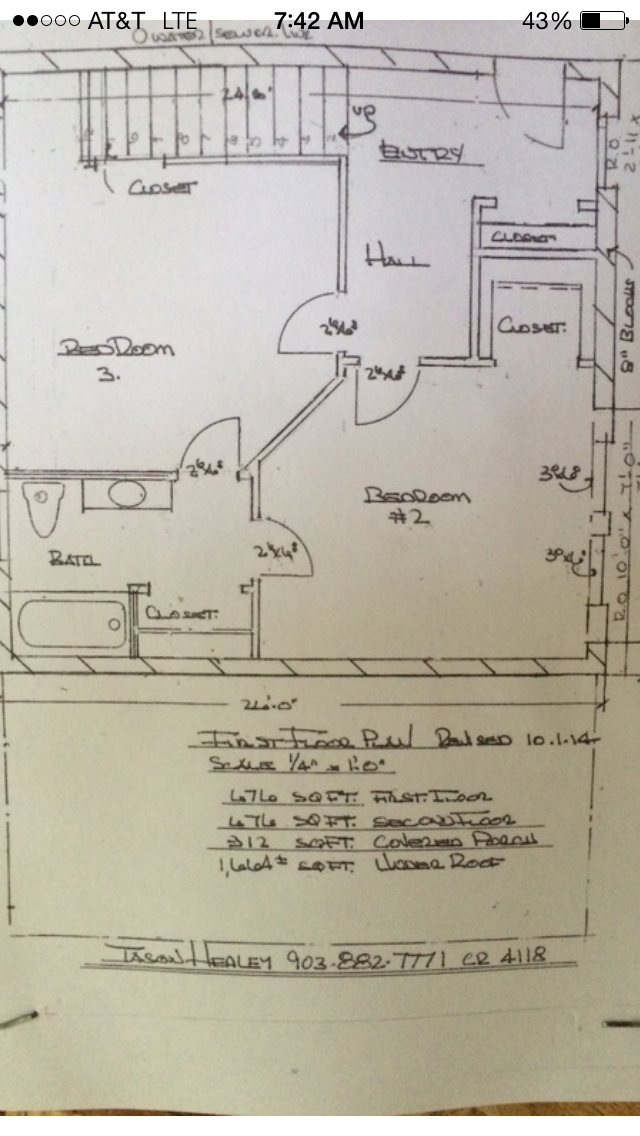 AT&T LTE 7:42 AM 43%
WATER/SEWER LINE
24'-6"
UP
ENTRY
R.O
2'-11 X
CLOSET
CLOSET
HALL
8" BLOCKS
2⁶x6⁸
CLOSET.
BEDROOM
3.
2⁶x6⁸
2⁶x6⁸
3⁰x6⁸
BEDROOM
#2
BATH
2⁶x6⁸
3⁰x6⁸
R.O 10'-0" x 7'-0"
CLOSET.
26'-0"
FIRST FLOOR PLAN REVISED 10.1.14
SCALE 1/4" = 1'-0"
676 SQFT. FIRST FLOOR
676 SQFT. SECOND FLOOR
312 SQFT. COVERED PORCH
1,664± SQFT. UNDER ROOF
JASON HEALEY 903-882-7771 CR 4118